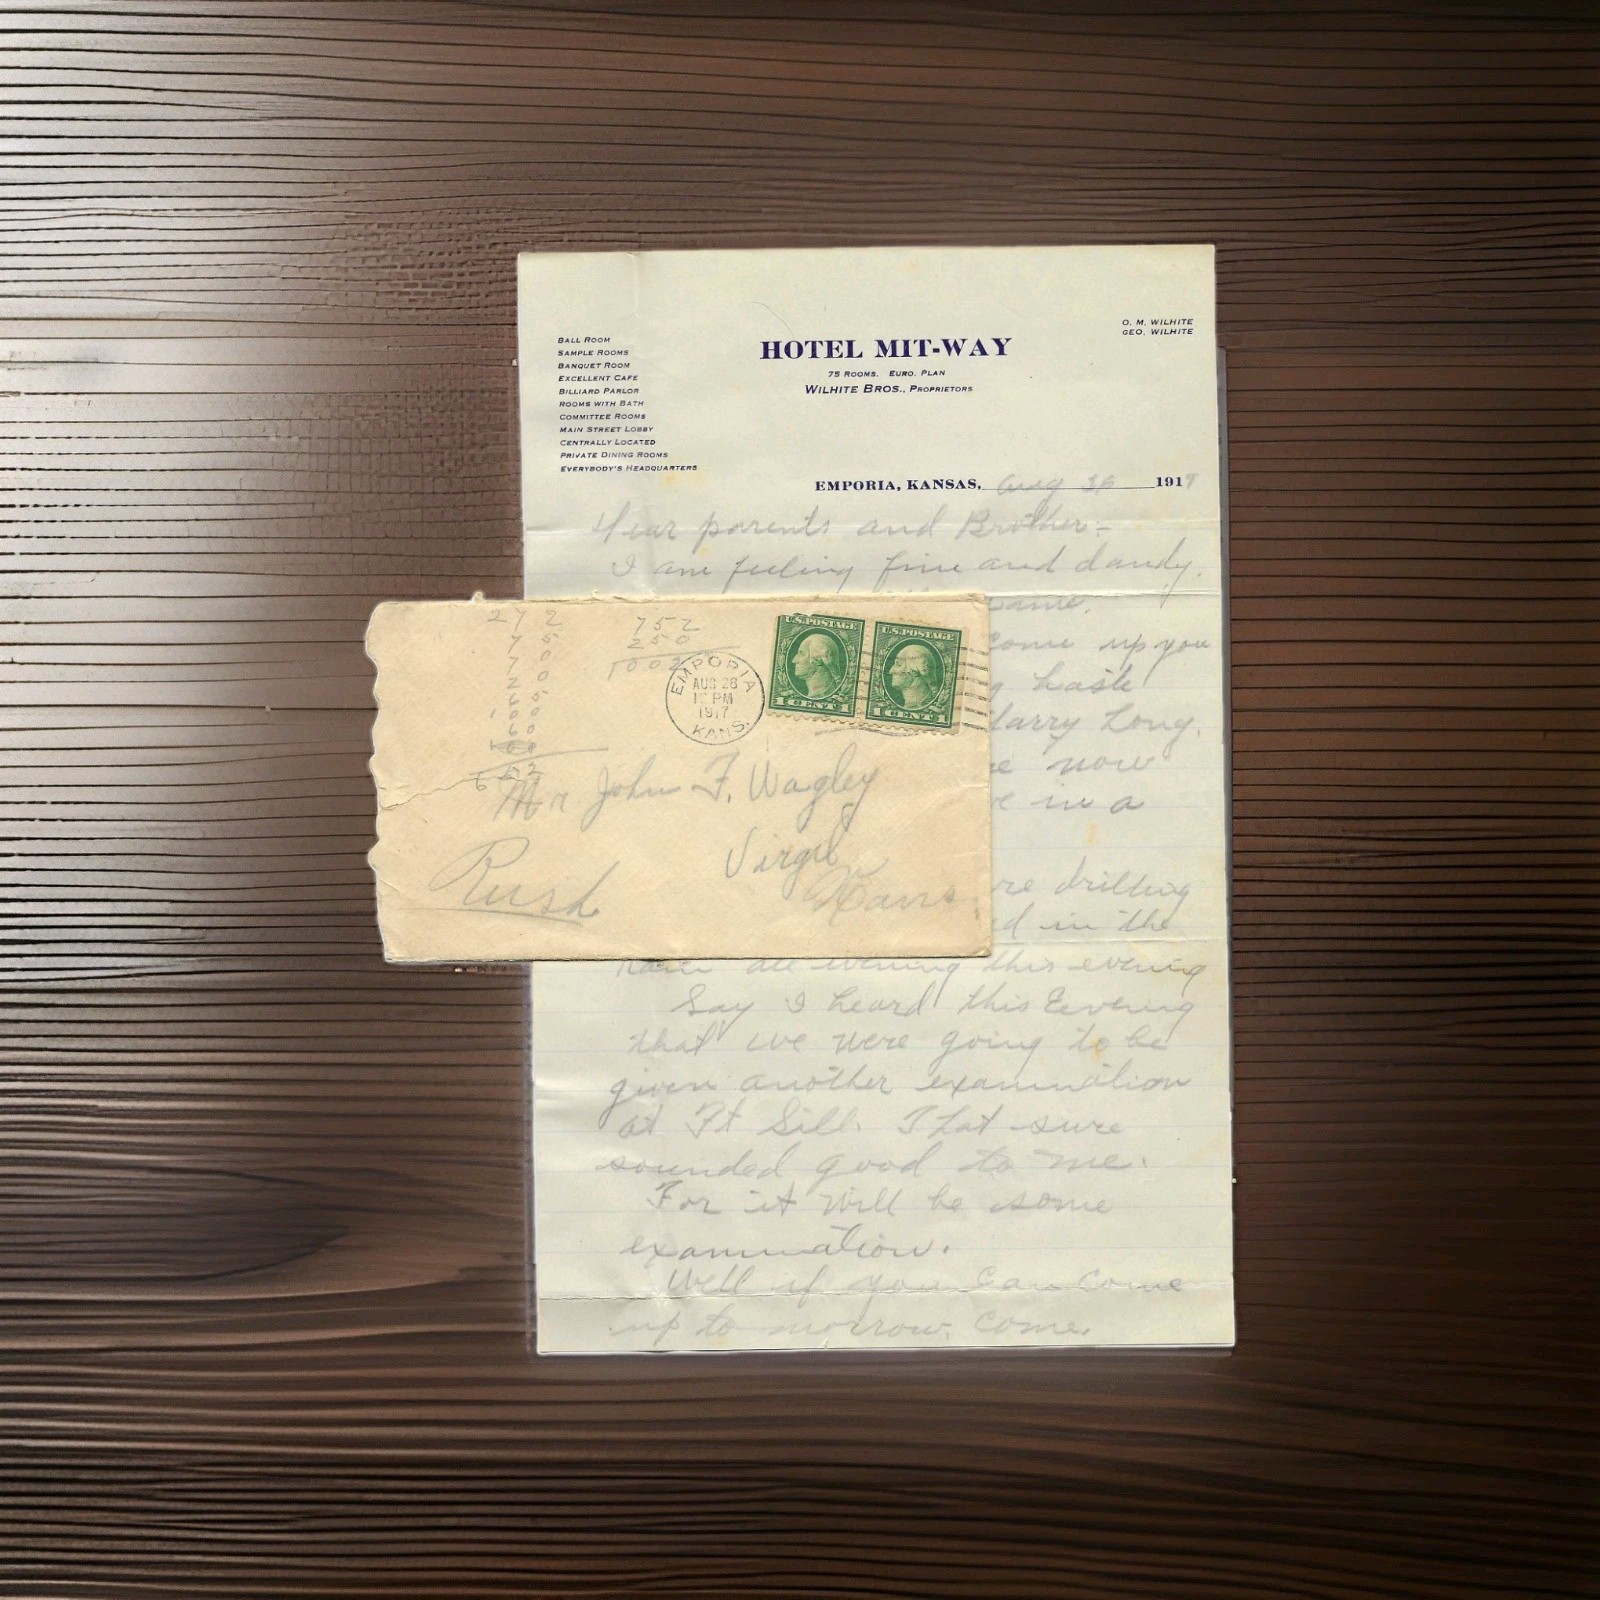 BALL ROOM
SAMPLE ROOMS
BANQUET ROOM
EXCELLENT CAFE
BILLIARD PARLOR
ROOMS WITH BATH
COMMITTEE ROOMS
MAIN STREET LOBBY
CENTRALLY LOCATED
PRIVATE DINING ROOMS
EVERYBODY'S HEADQUARTERS
HOTEL MIT-WAY
75 ROOMS. EURO. PLAN
WILHITE BROS., PROPRIETORS
O. M. WILHITE
GEO. WILHITE
EMPORIA, KANSAS, Aug 1917
Dear parents and Brother:-
I am feeling fine and dandy.
same.
come up you
haste
Harry Long.
now
in a
drilling
in the
all evening this evening
Say I heard this Evening
that we were going to be
given another examination
at Ft Sill. That sure
sounded good to me.
For it will be some
examination.
Well if you can come
up to morrow, come.
272
75
70
20
65
100
60
752
250
1002
EMPORIA
AUG 28
PM
1917
KANS.
U.S. POSTAGE
1 CENT 1
U.S. POSTAGE
1 CENT 1
Mr John F. Wagley
Virgil
Kans.
Rush